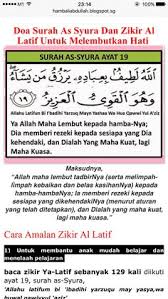 M1
23:14
hambaliabdullah.blogspot.sg
Doa Surah As Syura Dan Zikir Al
Latif Untuk Melembutkan Hati
SURAH AS-SYURA AYAT 19
اللَّهُ لَطِيفٌ بِعِبَادِهِ يَرْزُقُ مَن يَشَاءُ
وَهُوَ الْقَوِيُّ الْعَزِيزُ
Allahu Latifun Bi'ibadihi Yarzuqu Man Yasyaa Wa Hua Qawwiul Aziz
Allah Maha Lembut kepada hamba-Nya;
Dia memberi rezeki kepada sesiapa yang Dia
kehendaki, dan Dialah Yang Maha kuat, lagi
Maha Kuasa.
Maksudnya,
"Allah maha lembut tadbirNya (serta melimpah-
limpah kebaikan dan belas kasihanNya) kepada
hamba-hambaNya; Ia memberi rezeki kepada
sesiapa yang dikehendakiNya (menurut aturan
yang telah ditetapkan), dan Dialah Yang Maha
Kuat, lagi Maha Kuasa".
Cara Amalan Zikir Al Latif
1) Untuk membantu anak mudah belajar dan
menelaah pelajaran
baca zikir Ya-Latif sebanyak 129 kali diikuti
ayat 19, surah as-Syura,